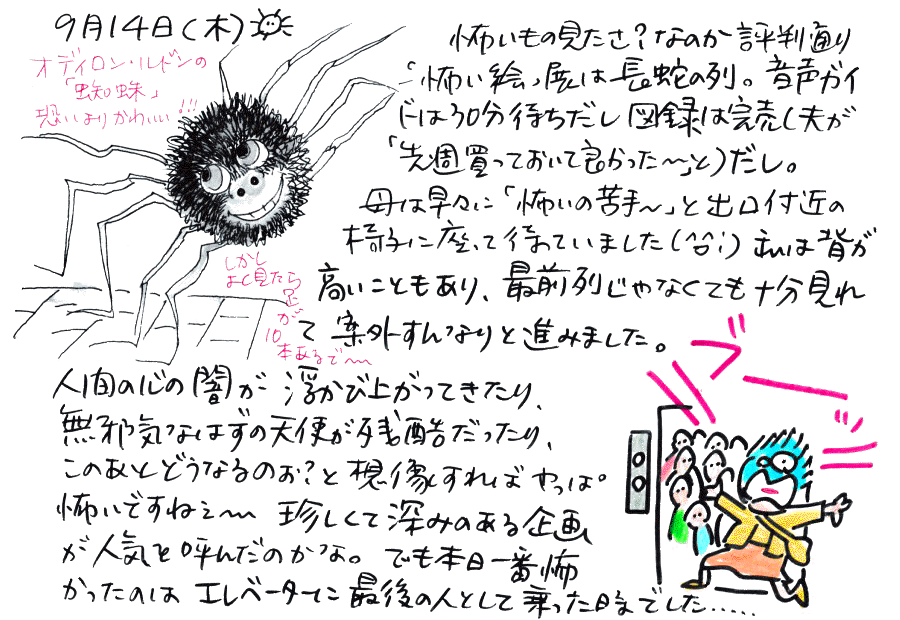 9月14日(木)
オディロン・ルドンの
「蜘蛛」
恐いよりかわいい!!!
怖いもの見たさ?なのか評判通り
「怖い絵」展は長蛇の列。音声ガイ
ドは30分待ちだし図録は完売(夫が
「先週買っておいて良かった〜」と)だし。
母は早々に「怖いの苦手〜」と出口付近の
椅子に座って待っていました(^^;)私は背が
高いこともあり、最前列じゃなくても十分見れ
て案外すんなりと進みました。
しかし
よく見たら
足が
10
本あるで〜
人間の心の闇が浮かび上がってきたり、
無邪気なはずの天使が残酷だったり、
このあとどうなるのぉ?と想像すればやっぱ
怖いですねェ〜 珍しくて深みのある企画
が人気を呼んだのかな。でも本日一番怖
かったのはエレベーターに最後の人として乗った時でした……
ブーッ